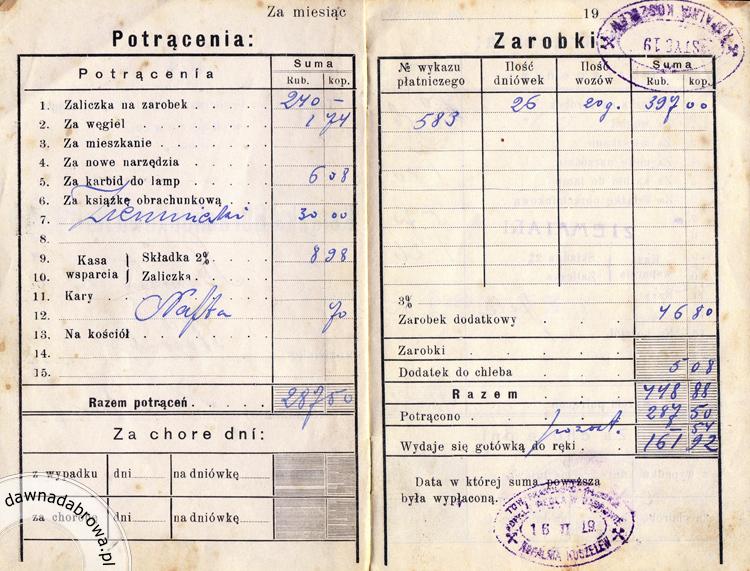 Za miesiąc
Potrącenia:
Potrącenia
Suma
Rub. kop.
1. Zaliczka na zarobek 240 –
2. Za węgiel 1 74
3. Za mieszkanie
4. Za nowe narzędzia
5. Za karbid do lamp 6 08
6. Za książkę obrachunkową
7. 30 00
8.
9. Kasa wsparcia Składka 2% 8 98
10. Zaliczka
11. Kary
12. Nafta 70
13. Na kościół
14.
15.
Razem potrąceń 287 50
Za chore dni:
z wypadku dni na dniówkę
za choroby dni na dniówkę
dawnadabrowa.pl
19
Zarobki
KOPALNIA KOSZELEW
STYC 19
№ wykazu płatniczego
Ilość dniówek
Ilość wozów
Suma
Rub. kop.
583 26 20g. 397 00
3%
Zarobek dodatkowy 46 80
Zarobki
Dodatek do chleba 5 08
Razem 448 88
Potrącono 287 50
pozost. 54
Wydaje się gotówką do ręki 161 92
Data w której suma powyższa
była wypłacona.
16 II 19.
KOPALNIA KOSZELEW